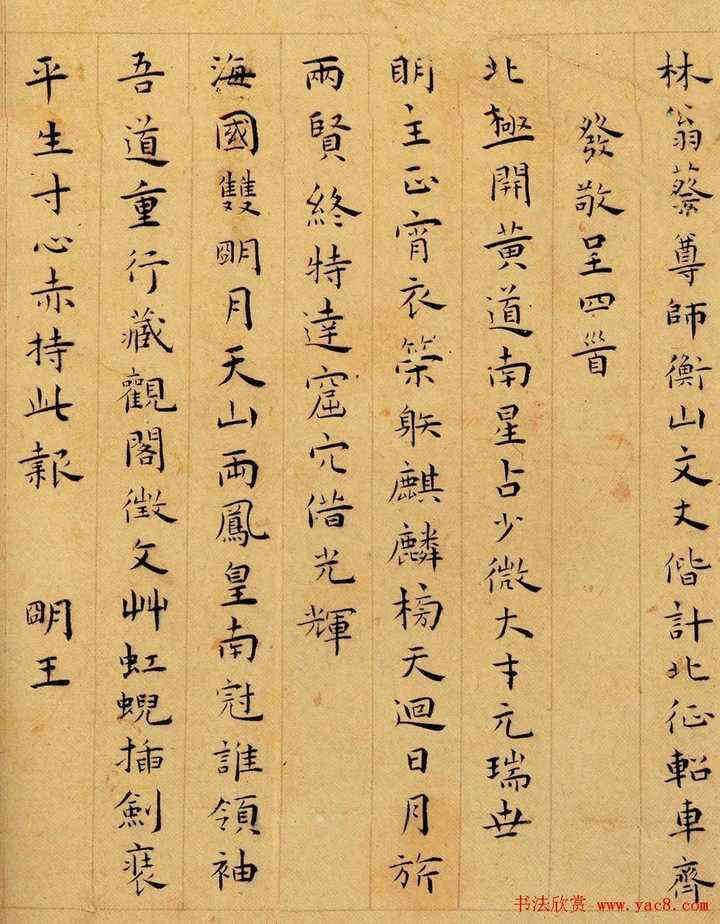 林翁蔡尊師衡山文丈偕計北征軺車齊
發敬呈四首
北極開黃道南星占少微大才元瑞世
明主正宵衣榮躰麒麟榜天迴日月旂
兩賢終特達窟穴借光輝
海國雙明月天山兩鳳皇南冠誰領袖
吾道重行藏觀閣徵文艸虹蜺插劍裛
平生寸心赤持此報 明王
书法欣赏 www.yac8.com